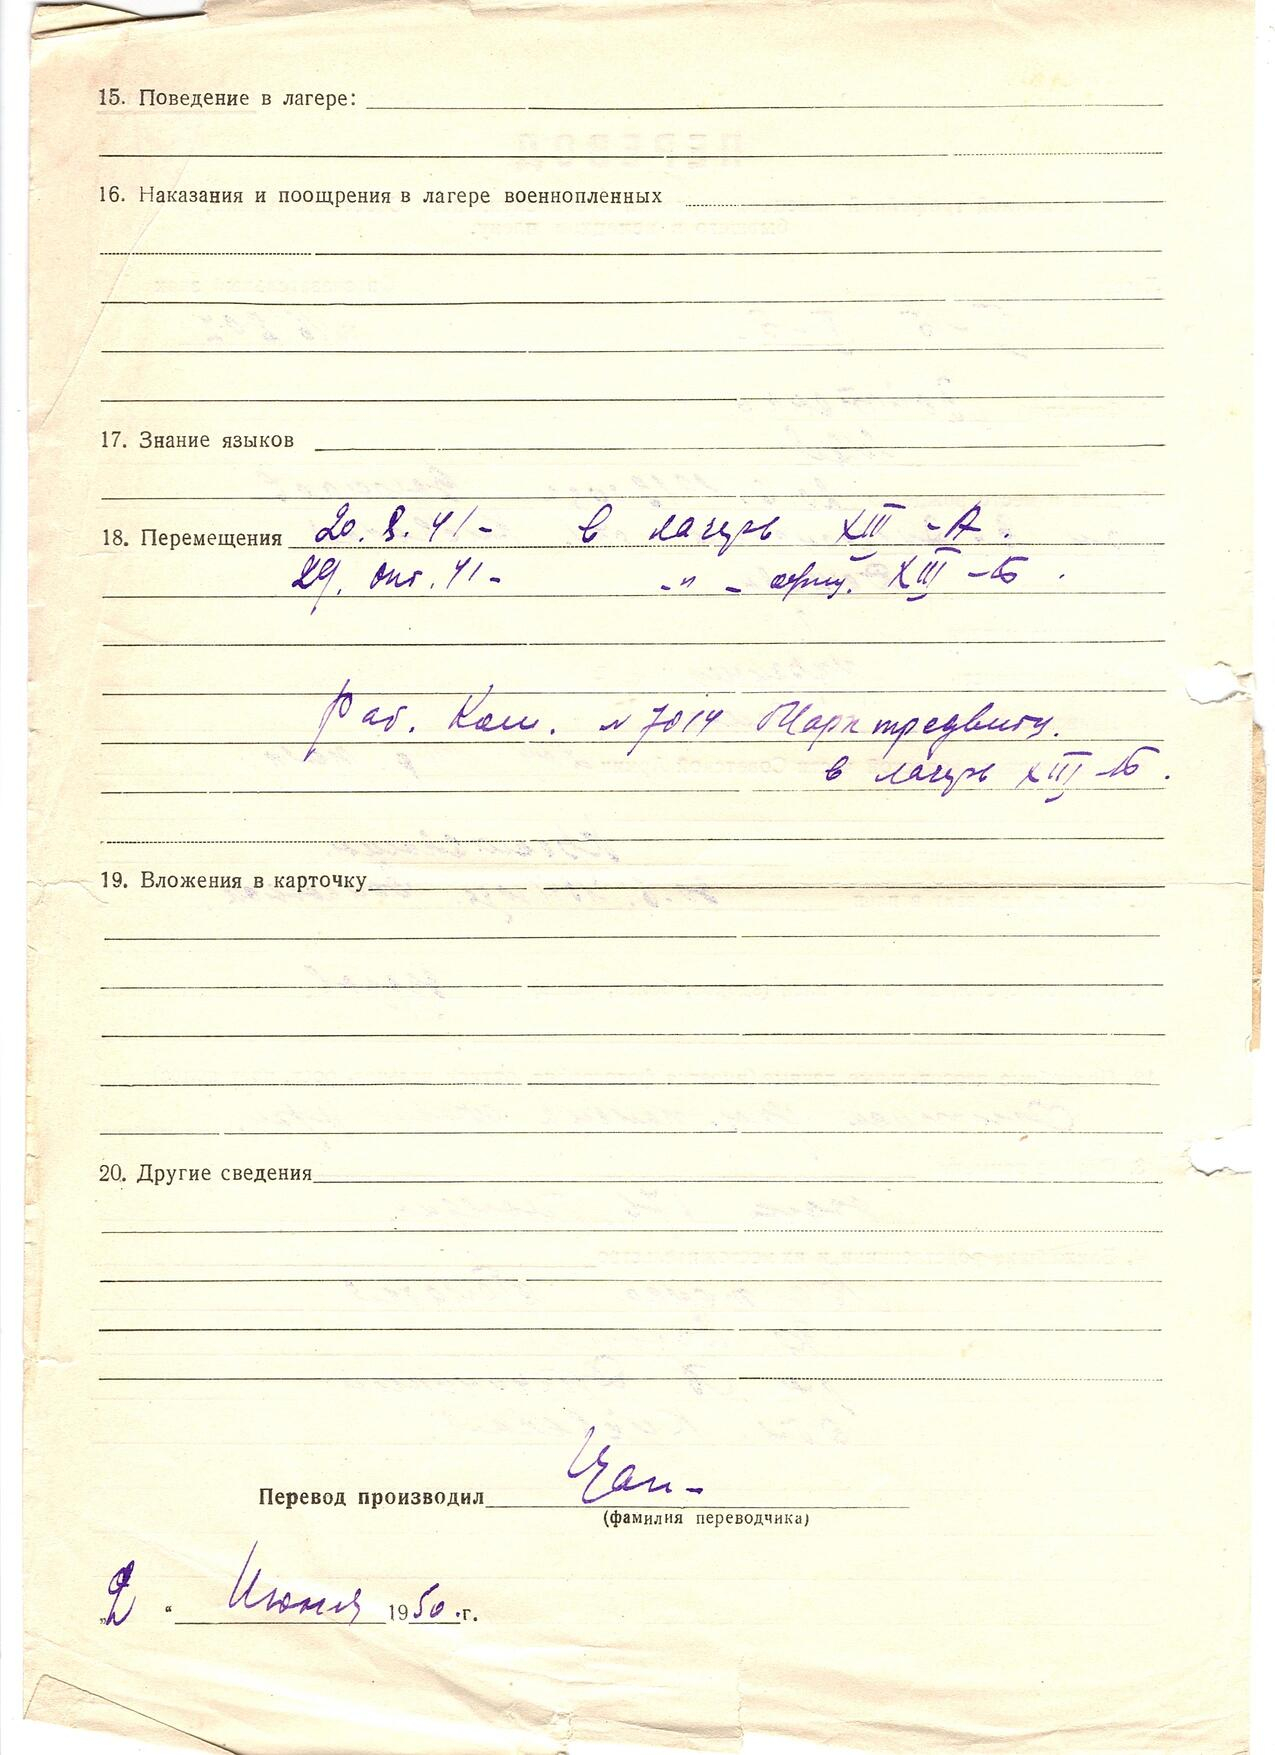 15. Поведение в лагере:
16. Наказания и поощрения в лагере военнопленных
17. Знание языков
18. Перемещения 20. 8. 41 - в лагерь XIII - А.
29. окт. 41 - - " - офиц. XIII - Б.
Раб. Ком. № 7014 Марктредвитц.
в лагерь XIII - Б.
19. Вложения в карточку
20. Другие сведения
Перевод производил
(фамилия переводчика)
„2“ Июня 1950.г.